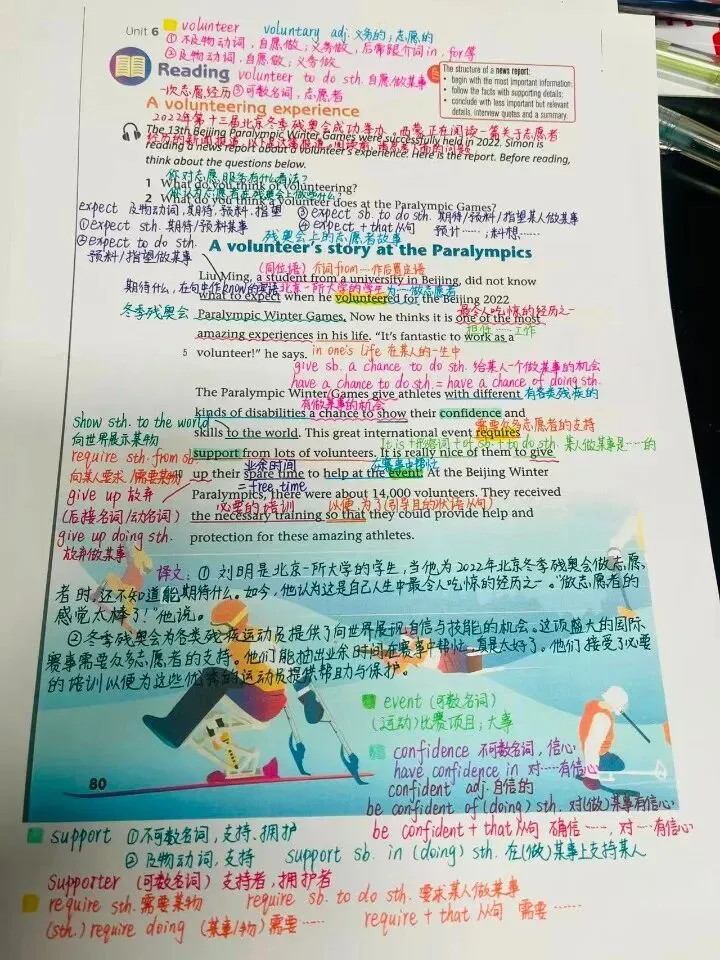 Unit 6
volunteer voluntary adj. 义务的；志愿的
①不及物动词，自愿做；义务做，后常跟介词in，for等
②及物动词，自愿做；义务做
Reading
volunteer to do sth. 自愿做某事
一次志愿经历 ③可数名词，志愿者
A volunteering experience
The structure of a news report:
• begin with the most important information;
• follow the facts with supporting details;
• conclude with less important but relevant details, interview quotes and a summary.
2022年第十三届北京冬季残奥会成功举办。西蒙正在阅读一篇关于志愿者
The 13th Beijing Paralympic Winter Games were successfully held in 2022. Simon is
reading a news report about a volunteer's experience. Here is the report. Before reading,
think about the questions below.
你对志愿服务有什么看法？
1 What do you think of volunteering?
2 What do you think a volunteer does at the Paralympic Games?
expect 及物动词，期待，预料，指望
①expect sth. 期待/预料某事
②expect to do sth.
预料/指望做某事
③expect sb. to do sth. 期待/预料/指望某人做某事
④expect + that从句 预计……；料想……
残奥会上的志愿者故事
A volunteer's story at the Paralympics
(同位语) 介词from…作后置定语
Liu Ming, a student from a university in Beijing, did not know
what to expect when he volunteered for the Beijing 2022
冬季残奥会
Paralympic Winter Games. Now he thinks it is one of the most
最令人吃惊的经历之一
amazing experiences in his life. "It's fantastic to work as a
担任……工作
5 volunteer!" he says.
in one's life 在某人的一生中
give sb. a chance to do sth. 给某人一个做某事的机会
have a chance to do sth. = have a chance of doing sth.
有做某事的机会
The Paralympic Winter Games give athletes with different
有各类残疾的
kinds of disabilities a chance to show their confidence and
skills to the world. This great international event requires
需要众多志愿者的支持
support from lots of volunteers. It is really nice of them to give
It is + 形容词 + of sb. + to do sth. 某人做某事是……的
10 up their spare time to help at the event. At the Beijing Winter
业余时间
= free time
在赛事中帮忙
Paralympics, there were about 14,000 volunteers. They received
必要的培训
以便，为了(引导目的状语从句)
the necessary training so that they could provide help and
protection for these amazing athletes.
show sth. to the world
向世界展示某物
require sth. from sb.
向某人要求/需要某物
give up 放弃
(后接名词/动名词)
give up doing sth.
放弃做某事
译文：①刘明是北京一所大学的学生，当他为2022年北京冬季残奥会做志愿
者时，还不知道能期待什么。如今，他认为这是自己人生中最令人吃惊的经历之一。“做志愿者的
感觉太棒了！”他说。
②冬季残奥会为各类残疾运动员提供了向世界展现自信与技能的机会。这项盛大的国际
赛事需要众多志愿者的支持。他们能抽出业余时间在赛事中帮忙，真是太好了。他们接受了必要
的培训以便为这些优秀的运动员提供帮助与保护。
event (可数名词)
(运动)比赛项目；大事
confidence 不可数名词，信心
have confidence in 对……有信心
confident adj. 自信的
be confident of (doing) sth. 对(做)某事有信心
be confident + that从句 确信……，对……有信心
80
support ①不可数名词，支持，拥护
②及物动词，支持 support sb. in (doing) sth. 在(做)某事上支持某人
supporter (可数名词) 支持者，拥护者
require sth. 需要某物 require sb. to do sth. 要求某人做某事
(sth.) require doing (某事/物) 需要…… require + that从句 需要……